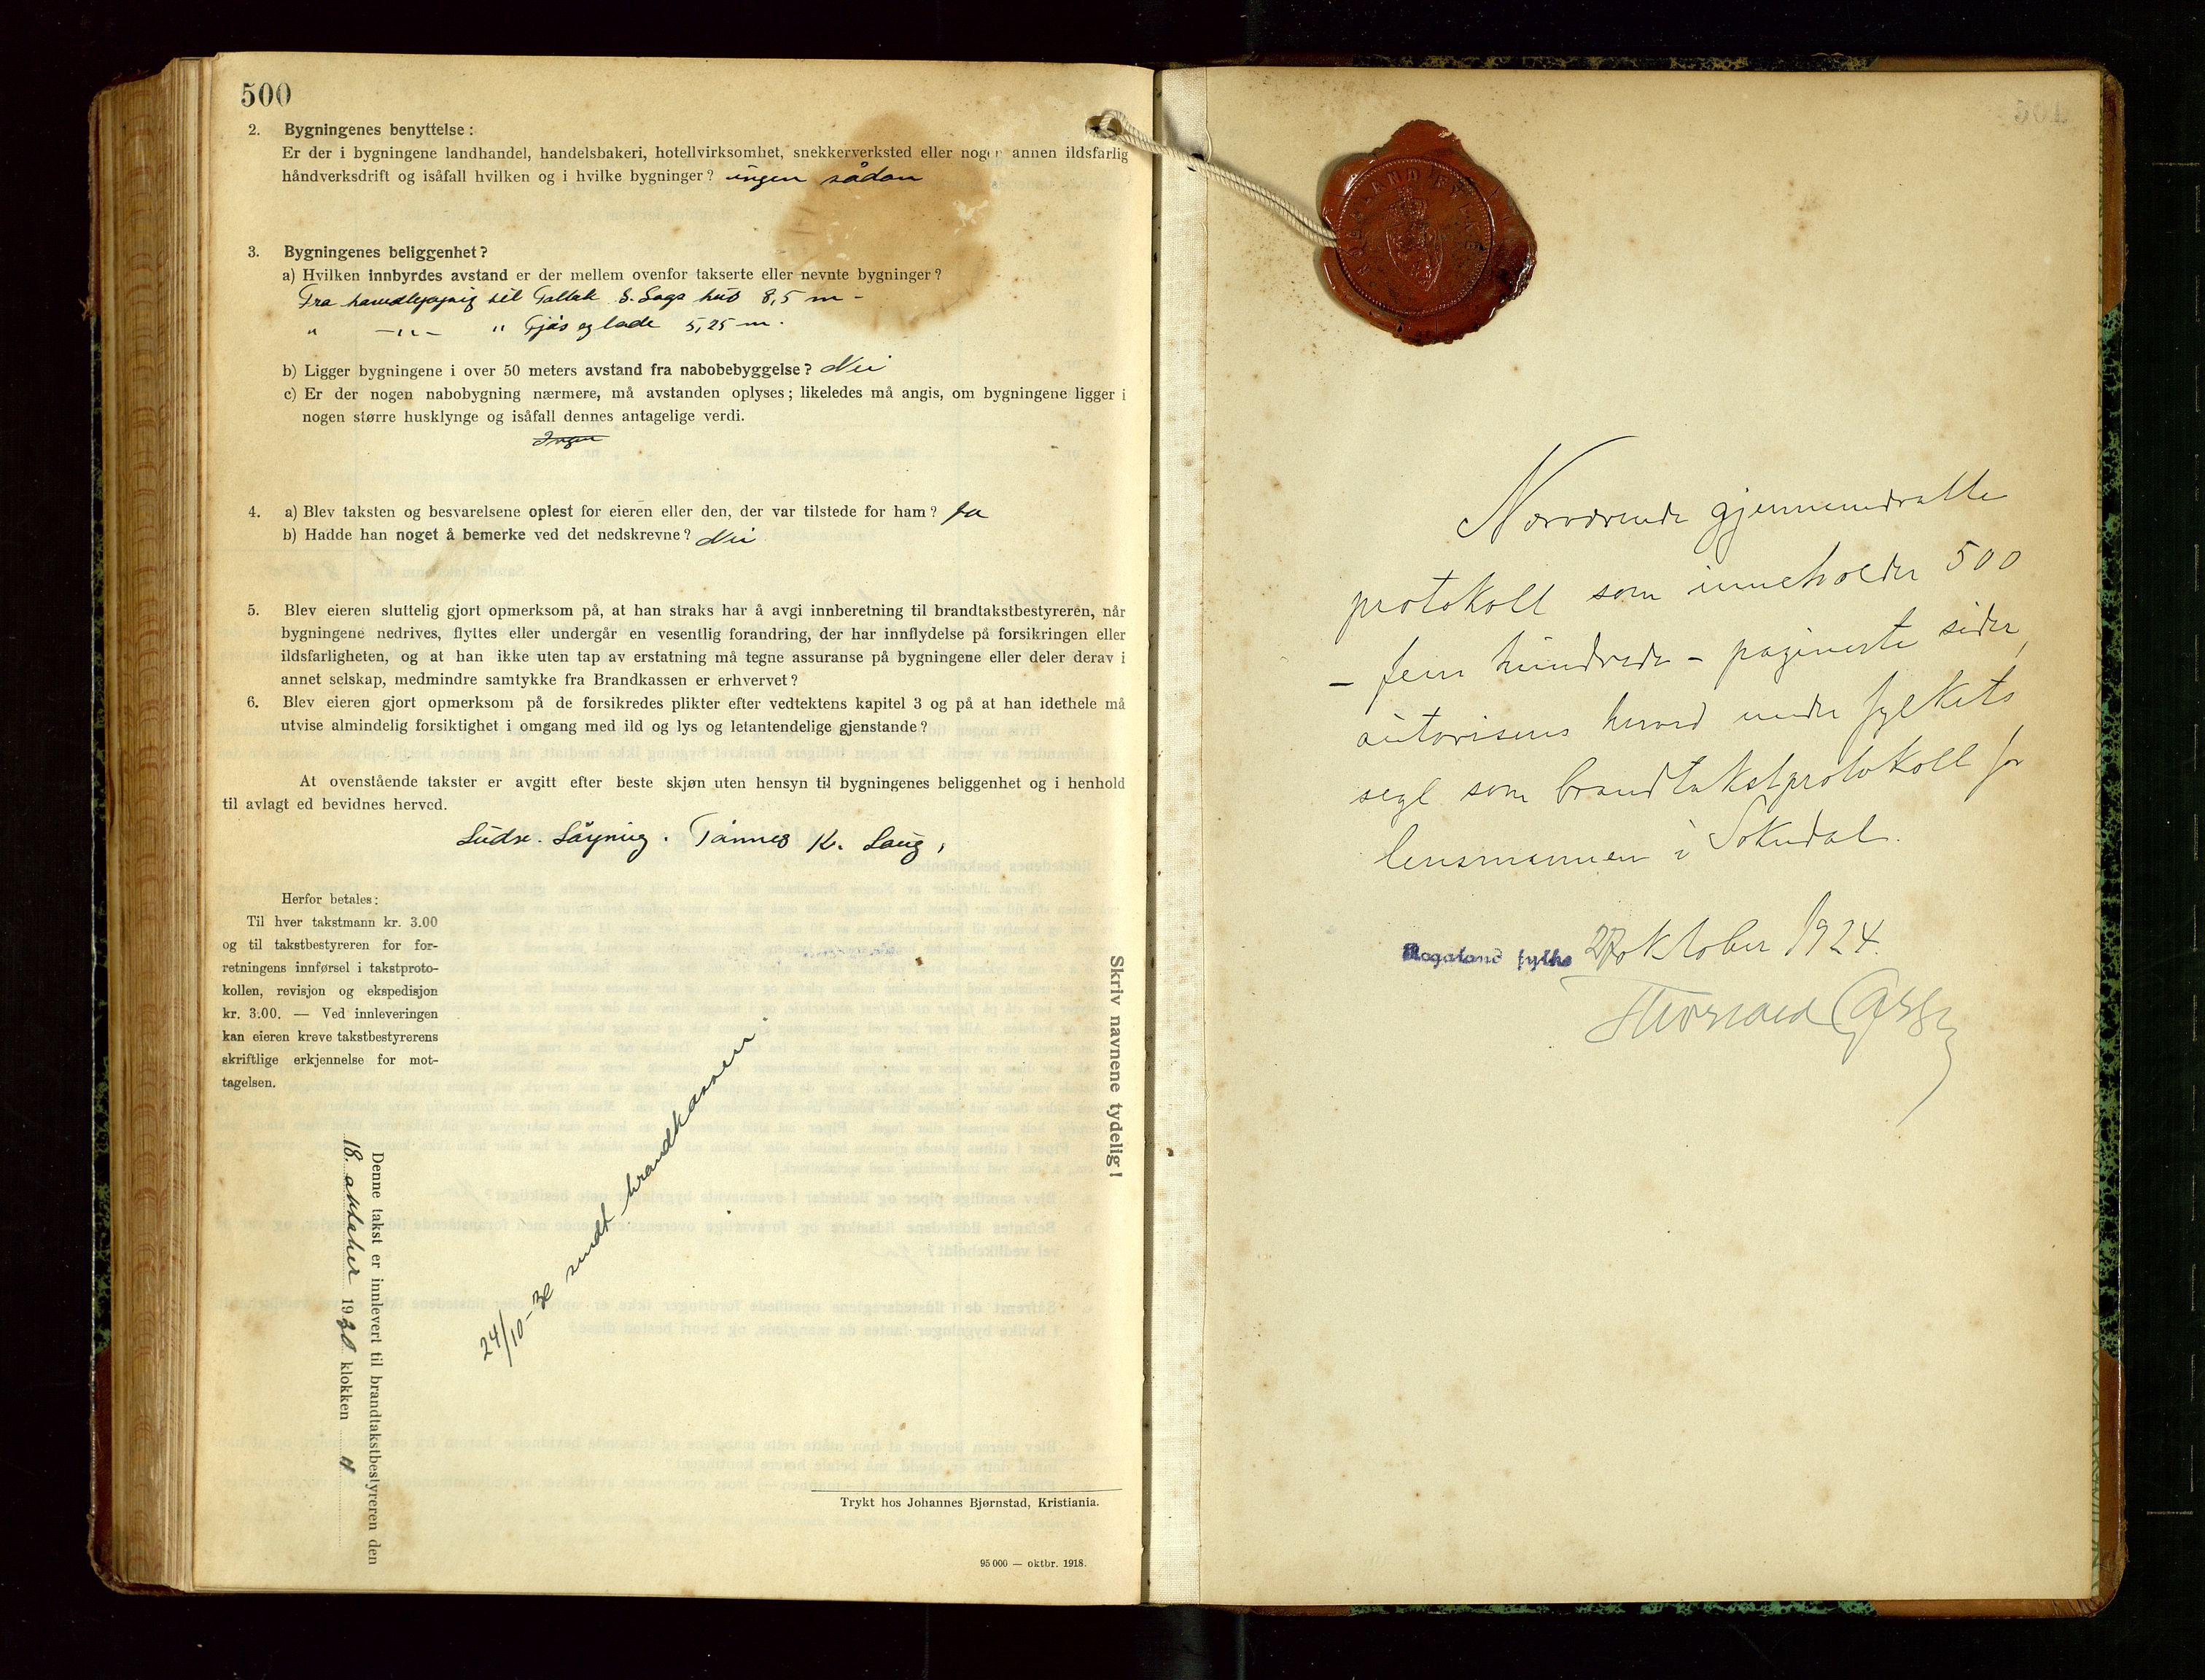 500
2. Bygningenes benyttelse:
Er der i bygningene landhandel, handelsbakeri, hotellvirksomhet, snekkerverksted eller nogen annen ildsfarlig
håndverksdrift og isåfall hvilken og i hvilke bygninger? ingen sådan
3. Bygningenes beliggenhet?
a) Hvilken innbyrdes avstand er der mellem ovenfor takserte eller nevnte bygninger?
Fra hovedbygnig til Tallak S. Laga hus 8,5 m -
" -"- " Fjøs og lade 5,25 m.
b) Ligger bygningene i over 50 meters avstand fra nabobebyggelse? Nei
c) Er der nogen nabobygning nærmere, må avstanden oplyses; likeledes må angis, om bygningene ligger i
nogen større husklynge og isåfall dennes antagelige verdi.
Ingen
4. a) Blev taksten og besvarelsene oplest for eieren eller den, der var tilstede for ham? Ja
b) Hadde han noget å bemerke ved det nedskrevne? Nei
5. Blev eieren sluttelig gjort opmerksom på, at han straks har å avgi innberetning til brandtakstbestyreren, når
bygningene nedrives, flyttes eller undergår en vesentlig forandring, der har innflydelse på forsikringen eller
ildsfarligheten, og at han ikke uten tap av erstatning må tegne assuranse på bygningene eller deler derav i
annet selskap, medmindre samtykke fra Brandkassen er erhvervet?
6. Blev eieren gjort opmerksom på de forsikredes plikter efter vedtektens kapitel 3 og på at han idethele må
utvise almindelig forsiktighet i omgang med ild og lys og letantendelige gjenstande?
At ovenstående takster er avgitt efter beste skjøn uten hensyn til bygningenes beliggenhet og i henhold
til avlagt ed bevidnes herved.
Løyning. Tønnes K. Laug,
Herfor betales:
Til hver takstmann kr. 3.00
og til takstbestyreren for for-
retningens innførsel i takstproto-
kollen, revisjon og ekspedisjon
kr. 3.00. — Ved innleveringen
kan eieren kreve takstbestyrerens
skriftlige erkjennelse for mot-
tagelsen.
Skriv navnene tydelig!
Denne takst er innlevert til brandtakstbestyreren den
18. oktober 1930 klokken 4
24/10-30 sendt brandkassen.
Trykt hos Johannes Bjørnstad, Kristiania.
95 000 — oktbr. 1918.
ROGALAND FYLKE
Nærværende gjennemdratte
protokoll som inneholder 500
- fem hundrede - paginerte sider,
autoriseres herved under fylkets
segl som brandtakstprotokoll for
lensmannen i Sokndal.
Rogaland fylke 27 oktober 1924.